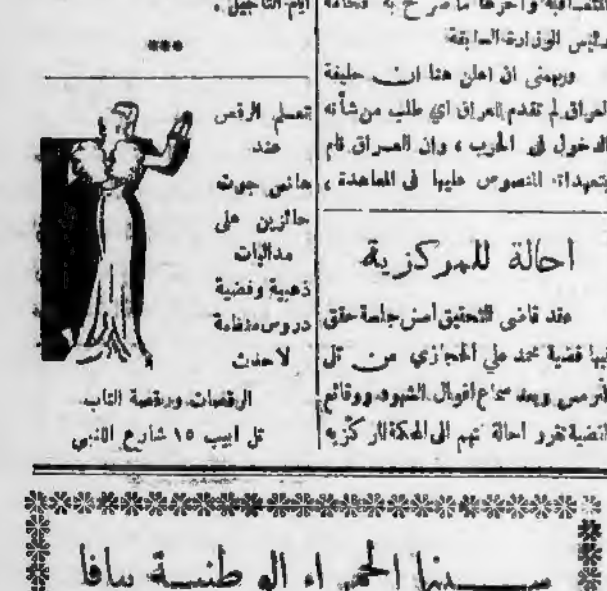 المتعاقبة وآخرها ما صرح به فخامة
رئيس الوزارة السابقة
ويهمني ان اعلن هنا ان حليفة
العراق لم تقدم للعراق اي طلب من شأنه
الدخول في الحرب ، وان العراق قام
بتعهداته المنصوص عليها في المعاهدة ،
احالة للمركزية
عقد قاضي التحقيق أمس جلسة حقق
فيها قضية محمد علي الحجازي من تل
الترمس وبعد سماع اقوال الشهود ووقائع
القضية تقرر احالة المتهم الى المحكمة المركزية
ايام التأجيل .
***
تعلم الرقص
عند
هانس جوت
حالزين على
مداليات
ذهبية وفضية
دروس منظمة
لاحدث
الرقصات ورقصة التاب
تل ابيب ١٥ شارع اللنبي
سينما الحمراء الوطنية بيافا